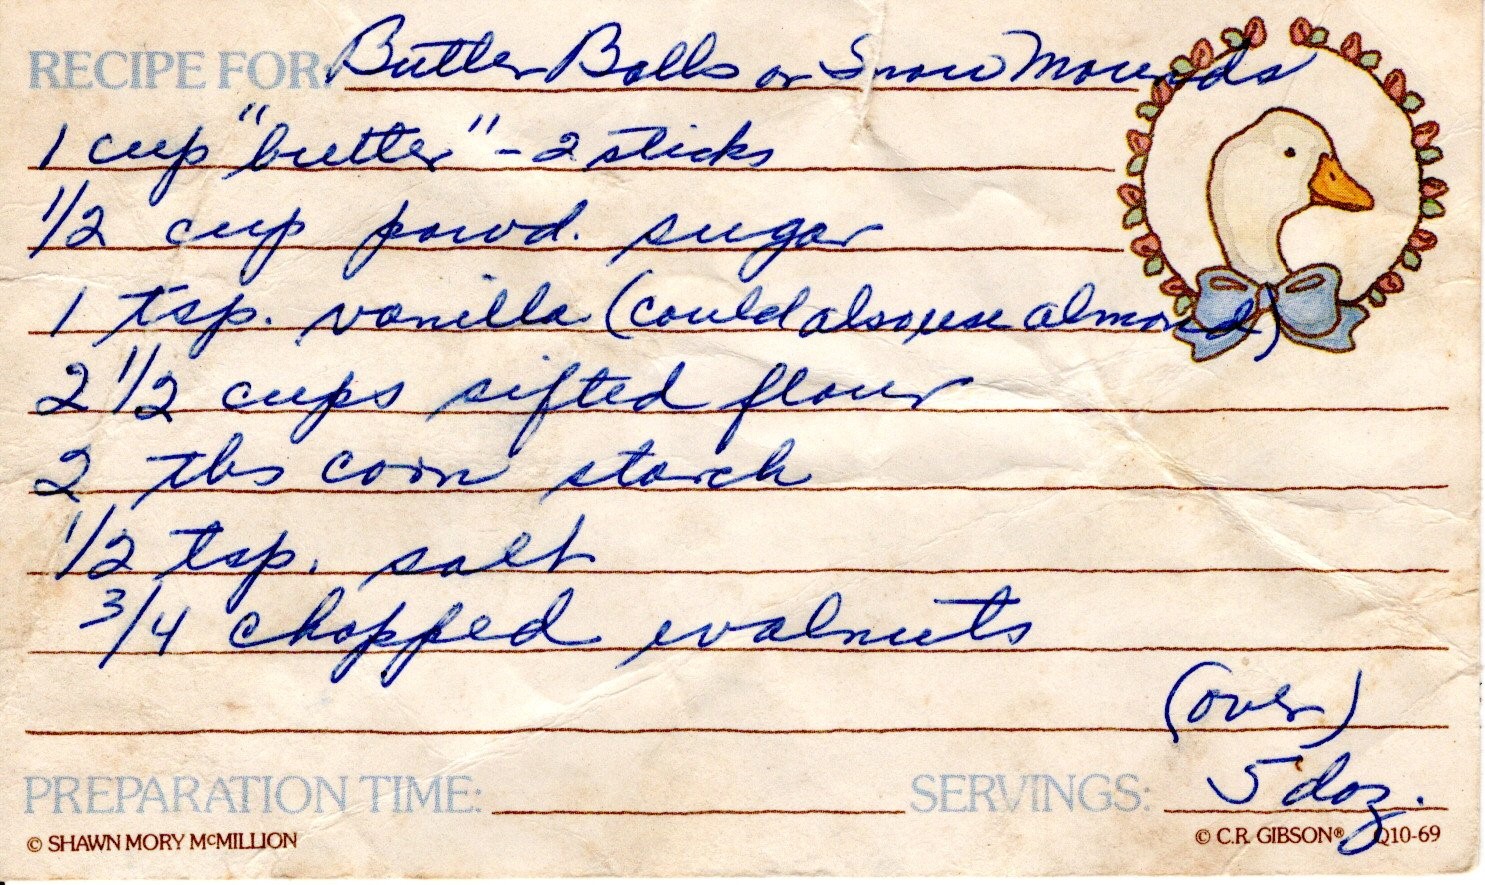 RECIPE FOR: Butter Balls or Snow Mounds
1 cup "butter" - 2 sticks
1/2 cup powd. sugar
1 tsp. vanilla (could also use almond)
2 1/2 cups sifted flour
2 tbs corn starch
1/2 tsp. salt
3/4 chopped walnuts
(over)
PREPARATION TIME: SERVINGS: 5 doz.
© SHAWN MORY McMILLION © C.R. GIBSON® Q10-69